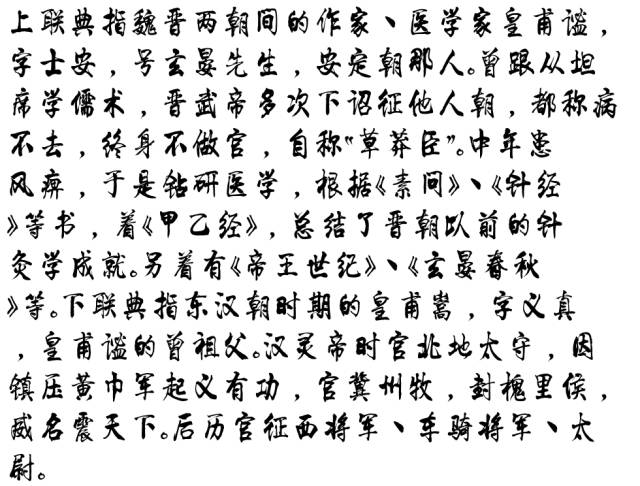 上联典指魏晋两朝间的作家、医学家皇甫谧，
字士安，号玄晏先生，安定朝那人。曾跟从坦
席学儒术，晋武帝多次下诏征他人朝，都称病
不去，终身不做官，自称“草莽臣”。中年患
风痹，于是钻研医学，根据《素问》、《针经
》等书，着《甲乙经》，总结了晋朝以前的针
灸学成就。另着有《帝王世纪》、《玄晏春秋
》等。下联典指东汉朝时期的皇甫嵩，字义真
，皇甫谧的曾祖父。汉灵帝时官北地太守，因
镇压黄巾军起义有功，官冀州牧，封槐里侯，
威名震天下。后历官征西将军、车骑将军、太
尉。